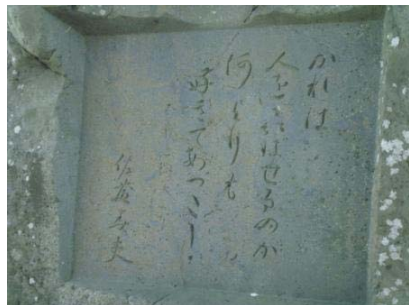 かれは
人を喜ばせるのが
何よりも
好きであった！
佐藤春夫